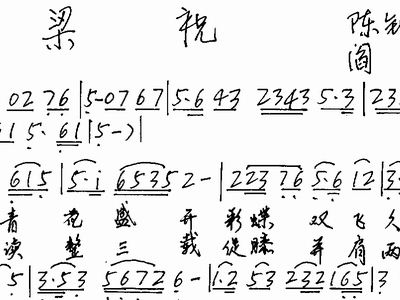 梁祝 陈
阎
02 76 | 5-07 67 | 5·6 43 2343 5·3 | 23
61 5· 61 | 5 - > |
615 | 5·i 6535 2 - | 223 76 5·6 12 | 3·
青 花 盛 开 彩 蝶 双 飞 久
读 整 三 载 促 膝 并 肩 两
5 | 3·53 5672 6 - | 1·2 53 232 165 | 3